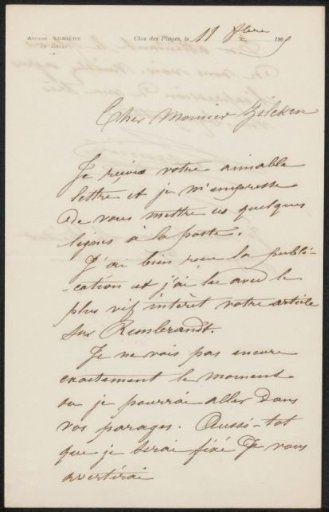 Antoine LUMIÈRE
Clos des Plages, le 11 8bre 190
Cher Monsieur Zilcken
Je reçois votre aimable
lettre et je m'empresse
de vous mettre ces quelques
lignes à la poste.
J'ai bien reçu la publi-
cation et j'ai lu avec le
plus vif intérêt votre article
sur Rembrandt.
Je ne vois pas encore
exactement le moment
où je pourrai aller dans
vos parages. Aussi-tôt
que je serai fixé je vous
avertirai